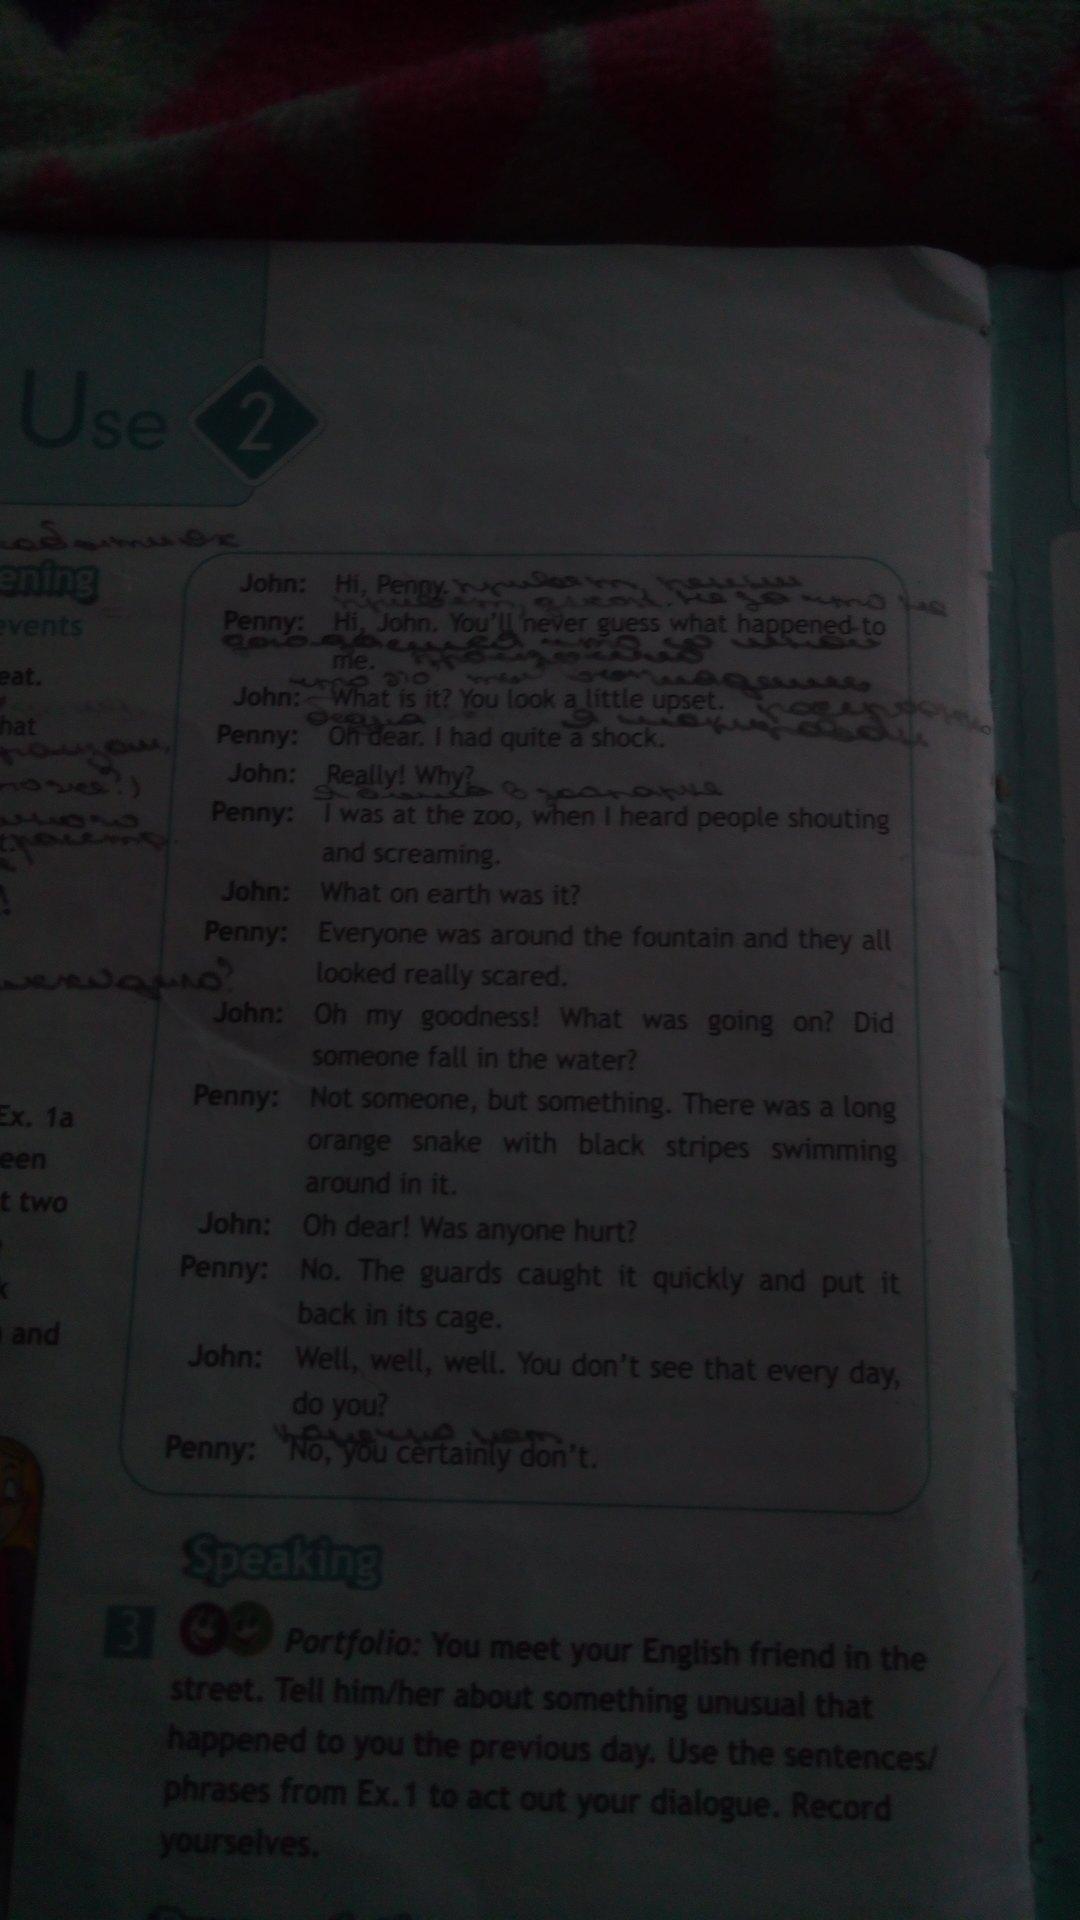 Use 2
ening
events
eat.
hat
John: Hi, Penny. привет, пенни
Penny: Hi, John. You'll never guess what happened to
me.
John: What is it? You look a little upset.
Penny: Oh dear. I had quite a shock.
John: Really! Why?
Penny: I was at the zoo, when I heard people shouting
and screaming.
John: What on earth was it?
Penny: Everyone was around the fountain and they all
looked really scared.
John: Oh my goodness! What was going on? Did
someone fall in the water?
Penny: Not someone, but something. There was a long
orange snake with black stripes swimming
around in it.
John: Oh dear! Was anyone hurt?
Penny: No. The guards caught it quickly and put it
back in its cage.
John: Well, well, well. You don't see that every day,
do you?
конечно нет
Penny: No, you certainly don't.
Ex. 1a
een
t two
k
and
Speaking
3 Portfolio: You meet your English friend in the
street. Tell him/her about something unusual that
happened to you the previous day. Use the sentences/
phrases from Ex.1 to act out your dialogue. Record
yourselves.